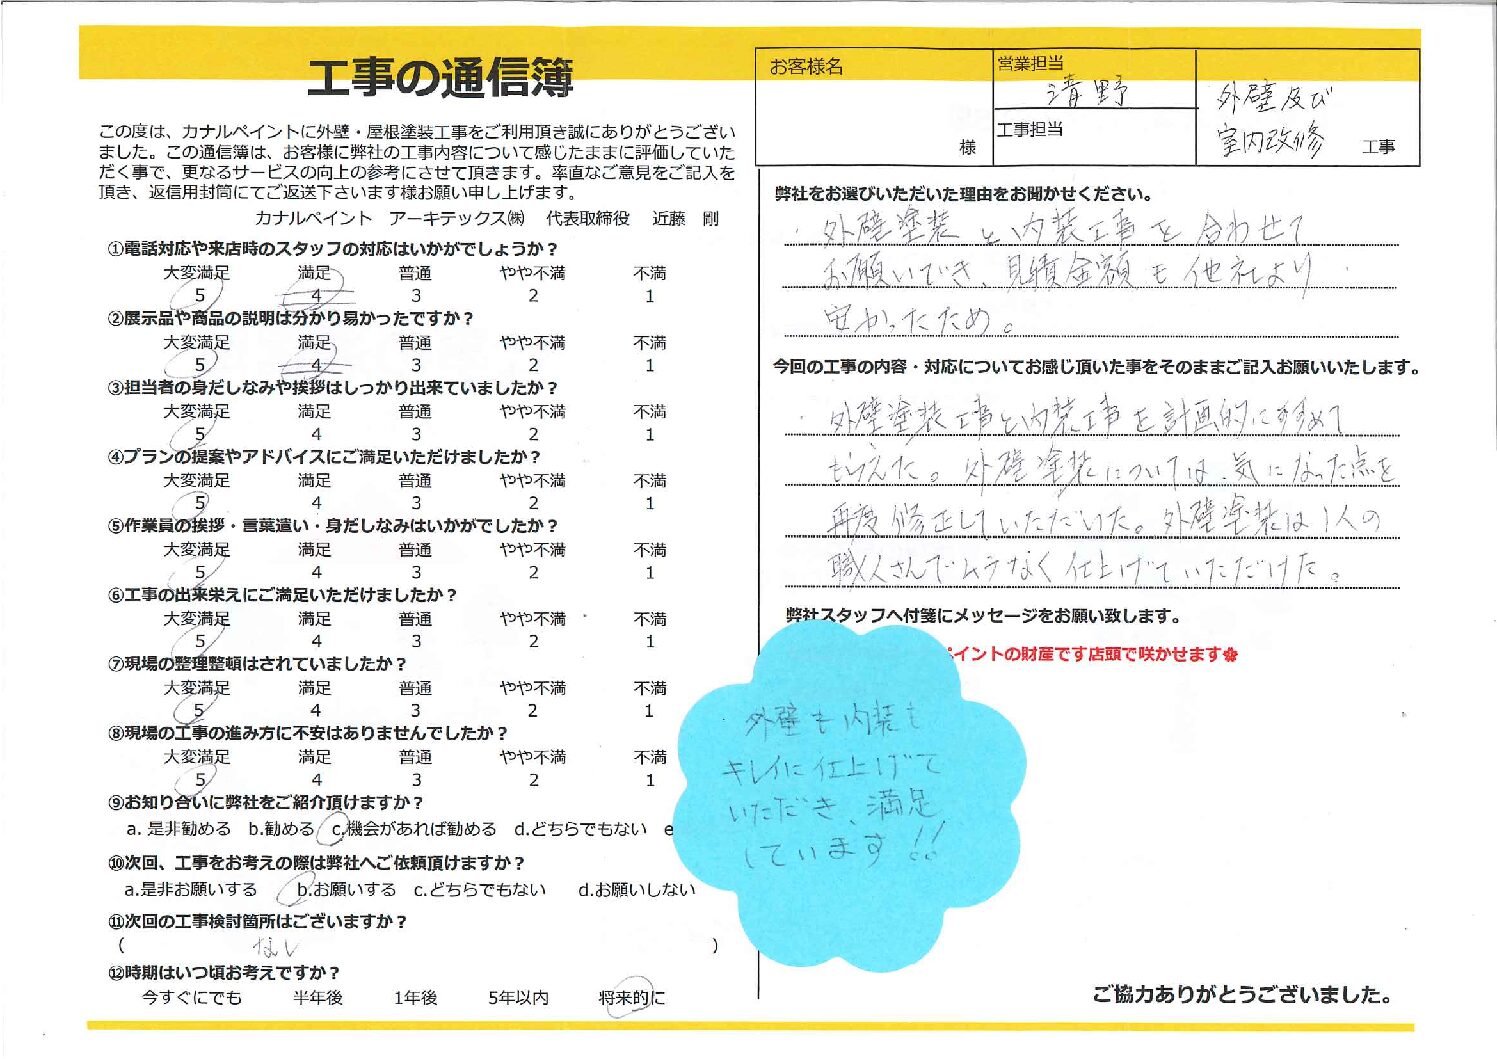 工事の通信簿
この度は、カナルペイントに外壁・屋根塗装工事をご利用頂き誠にありがとうござい
ました。この通信簿は、お客様に弊社の工事内容について感じたままに評価していた
だく事で、更なるサービスの向上の参考にさせて頂きます。率直なご意見をご記入を
頂き、返信用封筒にてご返送下さいます様お願い申し上げます。
カナルペイント アーキテックス㈱ 代表取締役 近藤 剛
①電話対応や来店時のスタッフの対応はいかがでしょうか？
大変満足 満足 普通 やや不満 不満
5 4 3 2 1
②展示品や商品の説明は分かり易かったですか？
大変満足 満足 普通 やや不満 不満
5 4 3 2 1
③担当者の身だしなみや挨拶はしっかり出来ていましたか？
大変満足 満足 普通 やや不満 不満
5 4 3 2 1
④プランの提案やアドバイスにご満足いただけましたか？
大変満足 満足 普通 やや不満 不満
5 4 3 2 1
⑤作業員の挨拶・言葉遣い・身だしなみはいかがでしたか？
大変満足 満足 普通 やや不満 不満
5 4 3 2 1
⑥工事の出来栄えにご満足いただけましたか？
大変満足 満足 普通 やや不満 不満
5 4 3 2 1
⑦現場の整理整頓はされていましたか？
大変満足 満足 普通 やや不満 不満
5 4 3 2 1
⑧現場の工事の進み方に不安はありませんでしたか？
大変満足 満足 普通 やや不満 不満
5 4 3 2 1
⑨お知り合いに弊社をご紹介頂けますか？
a. 是非勧める b.勧める c.機会があれば勧める d.どちらでもない e
⑩次回、工事をお考えの際は弊社へご依頼頂けますか？
a.是非お願いする b.お願いする c.どちらでもない d.お願いしない
⑪次回の工事検討箇所はございますか？
( なし )
⑫時期はいつ頃お考えですか？
今すぐにでも 半年後 1年後 5年以内 将来的に
お客様名
様
営業担当
清野
工事担当
外壁及び
室内改修 工事
弊社をお選びいただいた理由をお聞かせください。
・外壁塗装と内装工事を合わせて
お願いでき、見積金額も他社より
安かったため。
今回の工事の内容・対応についてお感じ頂いた事をそのままご記入お願いいたします。
・外壁塗装工事と内装工事を計画的にすすめて
もらえた。外壁塗装については、気になった点を
再度修正していただいた。外壁塗装は1人の
職人さんでムラなく仕上げていただけた。
弊社スタッフへ付箋にメッセージをお願い致します。
ペイントの財産です店頭で咲かせます✿
外壁も内装も
キレイに仕上げて
いただき、満足
しています!!
ご協力ありがとうございました。